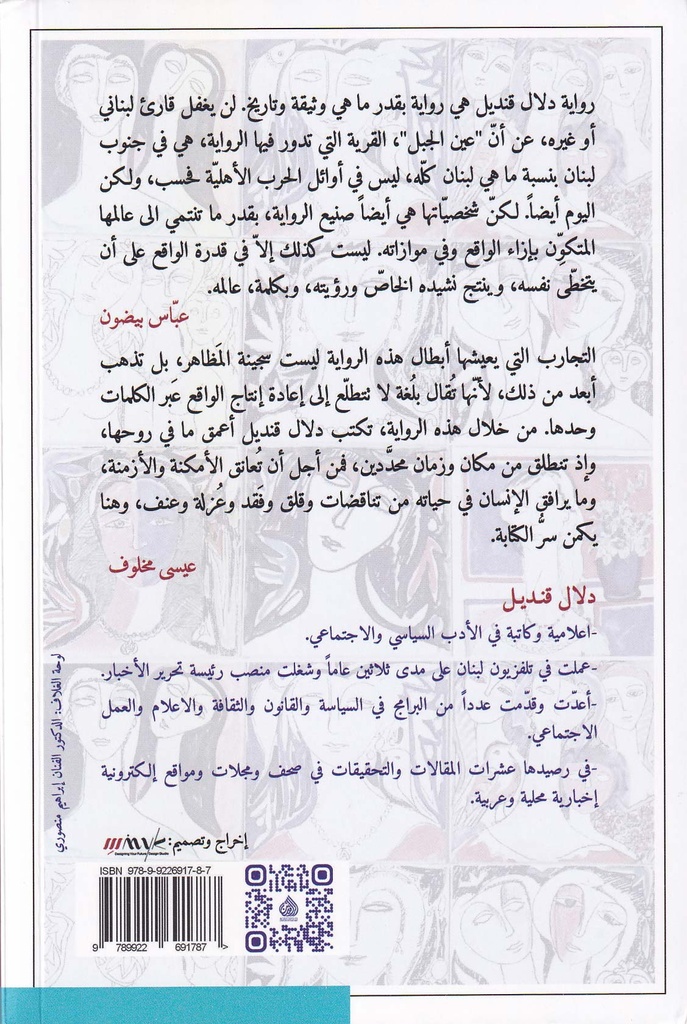 رواية دلال قنديل هي رواية بقدر ما هي وثيقة وتاريخ. لن يغفل قارئ لبناني
أو غيره، عن أنّ "عين الجبل"، القرية التي تدور فيها الرواية، هي في جنوب
لبنان بنسبة ما هي لبنان كلّه، ليس في أوائل الحرب الأهليّة فحسب، ولكن
اليوم أيضاً. لكنّ شخصيّاتها هي أيضاً صنيع الرواية، بقدر ما تنتمي الى عالمها
المتكوّن بإزاء الواقع وفي موازاته. ليست كذلك إلاّ في قدرة الواقع على أن
يتخطّى نفسه، وينتج نشيده الخاصّ ورؤيته، وبكلمة، عالمه.
عبّاس بيضون
التجارب التي يعيشها أبطال هذه الرواية ليست سجينة المَظاهر، بل تذهب
أبعد من ذلك، لأنّها تُقال بلُغة لا تتطلّع إلى إعادة إنتاج الواقع عَبر الكلمات
وحدها. من خلال هذه الرواية، تكتب دلال قنديل أعمق ما في روحها،
وإذ تنطلق من مكان وزمان محدَّدين، فمن أجل أن تُعانق الأمكنة والأزمنة،
وما يرافق الإنسان في حياته من تناقضات وقلق وفَقد وعُزلة وعنف، وهنا
يكمن سرُّ الكتابة.
عيسى مخلوف
دلال قنديل
-اعلامية وكاتبة في الأدب السياسي والاجتماعي.
-عملت في تلفزيون لبنان على مدى ثلاثين عاماً وشغلت منصب رئيسة تحرير الأخبار.
-أعدّت وقدّمت عدداً من البرامج في السياسة والقانون والثقافة والاعلام والعمل
الاجتماعي.
-في رصيدها عشرات المقالات والتحقيقات في صحف ومجلات ومواقع إلكترونية
إخبارية محلية وعربية.
لوحة الغلاف: الدكتور الفنان إبراهيم منصوري
إخراج وتصميم:
Designing Your Future | Design Studio
ISBN 978-9-9226917-8-7
9 789922 691787 >